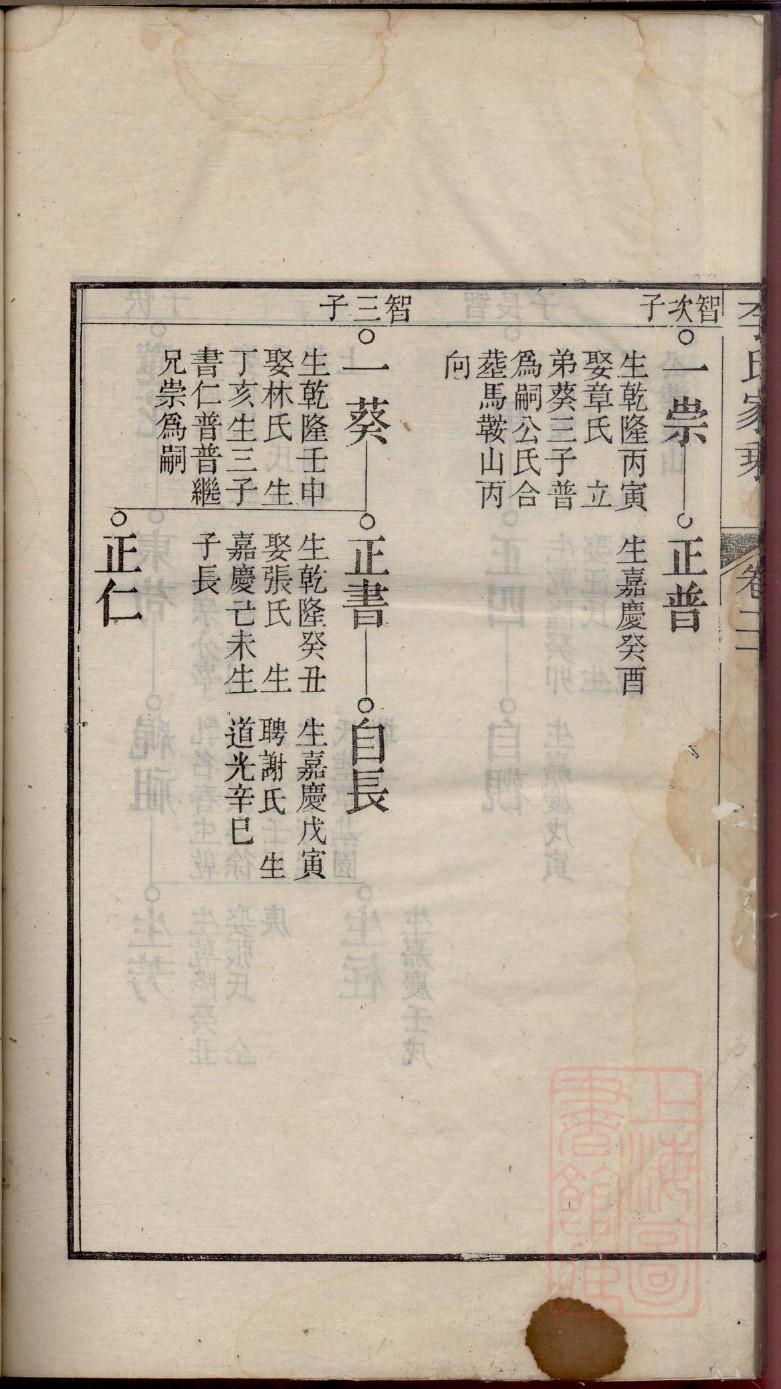 李氏家乘
卷二
智次子
一崇
生乾隆丙寅
娶章氏　立
弟葵三子普
為嗣公氏合
葬馬鞍山丙
向
正普
生嘉慶癸酉
智三子
一葵
生乾隆壬申
娶林氏　生
丁亥生三子
書仁普普繼
兄崇為嗣
正書
生乾隆癸丑
娶張氏　生
嘉慶己未生
子長
自長
生嘉慶戊寅
聘謝氏　生
道光辛巳
正仁
上海圖
書館藏